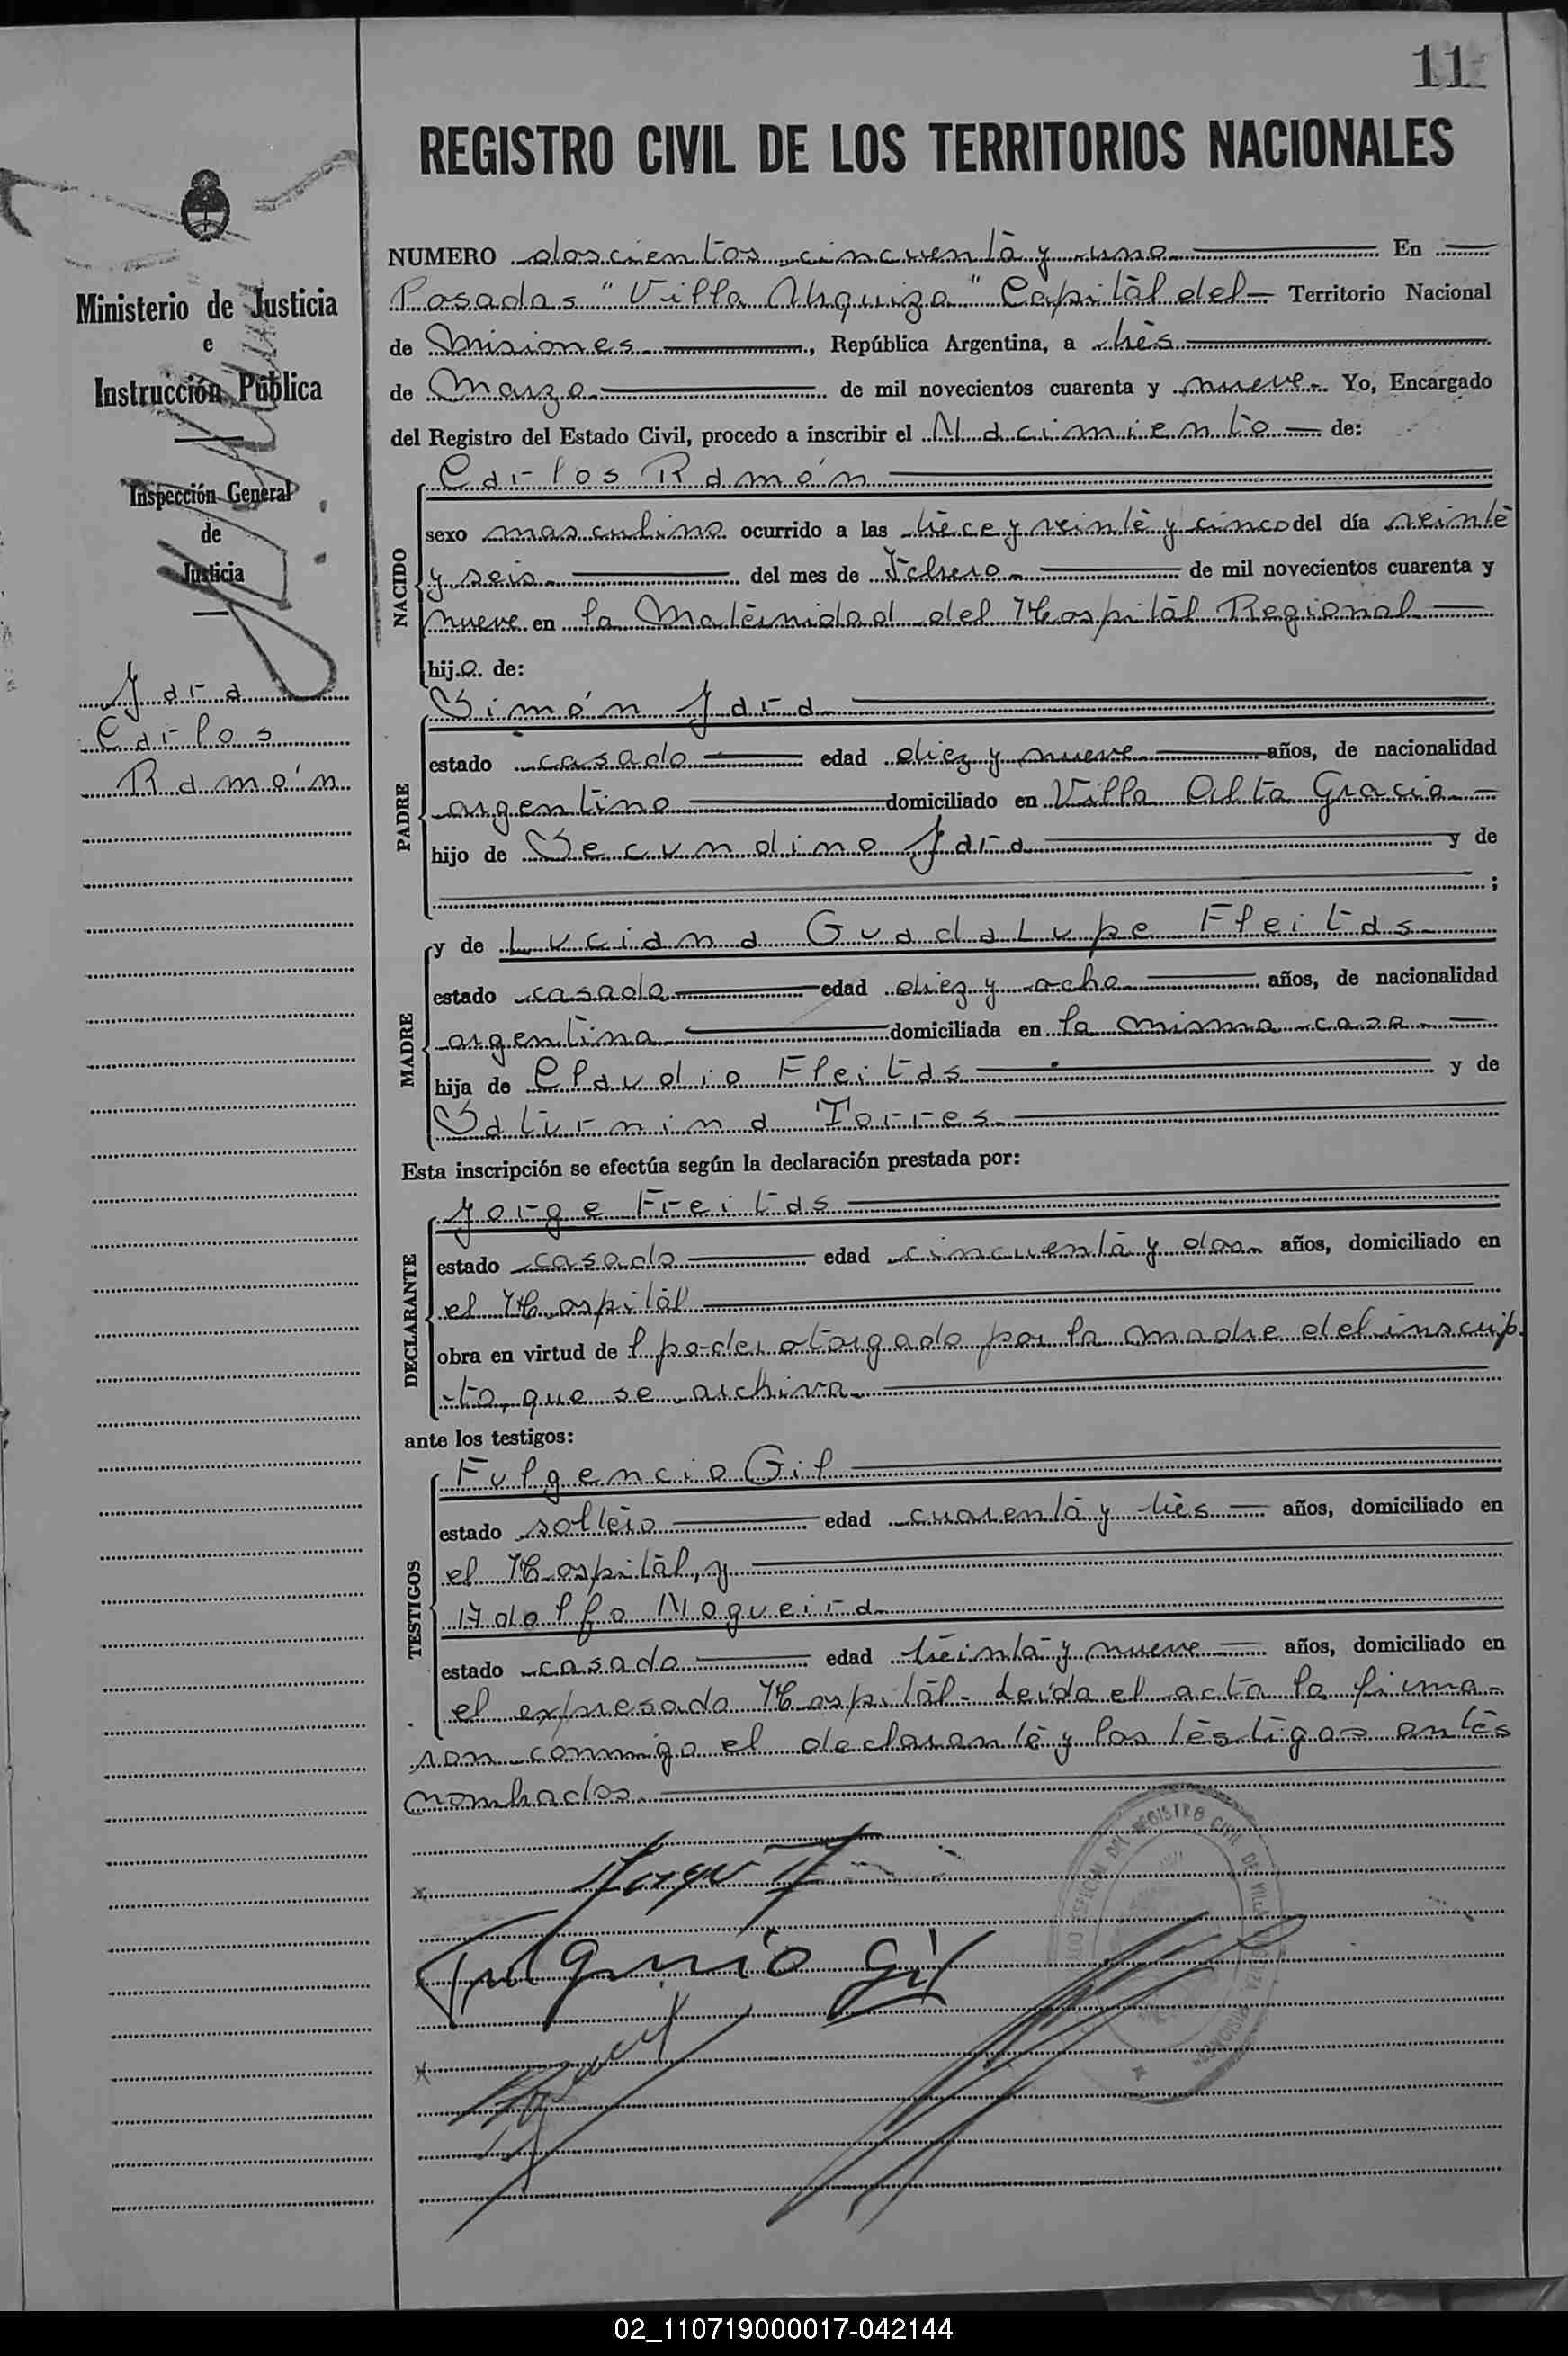 11
REGISTRO CIVIL DE LOS TERRITORIOS NACIONALES
Ministerio de Justicia
e
Instrucción Pública
Inspección General
de
Justicia
Jara
Carlos
Ramón
NUMERO doscientos cincuenta y uno En
Posadas "Villa Urquiza" Capital del Territorio Nacional
de Misiones, República Argentina, a tres
de Marzo de mil novecientos cuarenta y nueve. Yo, Encargado
del Registro del Estado Civil, procedo a inscribir el Nacimiento de:
Carlos Ramón
NACIDO
sexo masculino ocurrido a las trece y veinte y cinco del día veinte
y seis del mes de Febrero de mil novecientos cuarenta y
nueve en la Maternidad del Hospital Regional
hijo de:
Simón Jara
PADRE
estado casado edad diez y nueve años, de nacionalidad
argentino domiciliado en Villa Alta Gracia
hijo de Secundino Jara y de
;
y de Luciana Guadalupe Fleitas
MADRE
estado casada edad diez y ocho años, de nacionalidad
argentina domiciliada en la misma casa
hija de Claudio Fleitas y de
Saturnina Torres
Esta inscripción se efectúa según la declaración prestada por:
Jorge Freitas
DECLARANTE
estado casado edad cincuenta y dos años, domiciliado en
el Hospital
obra en virtud del poder otorgado por la madre del inscrip
-to, que se archiva.
ante los testigos:
Fulgencio Gil
TESTIGOS
estado soltero edad cuarenta y tres años, domiciliado en
el Hospital, y
Adolfo Nogueira
estado casado edad treinta y nueve años, domiciliado en
el expresado Hospital. Leída el acta la firma-
ron conmigo el declarante y los testigos antes
nombrados.
Fulgencio Gil
DEL REGISTRO CIVIL DE VILLA
02_110719000017-042144